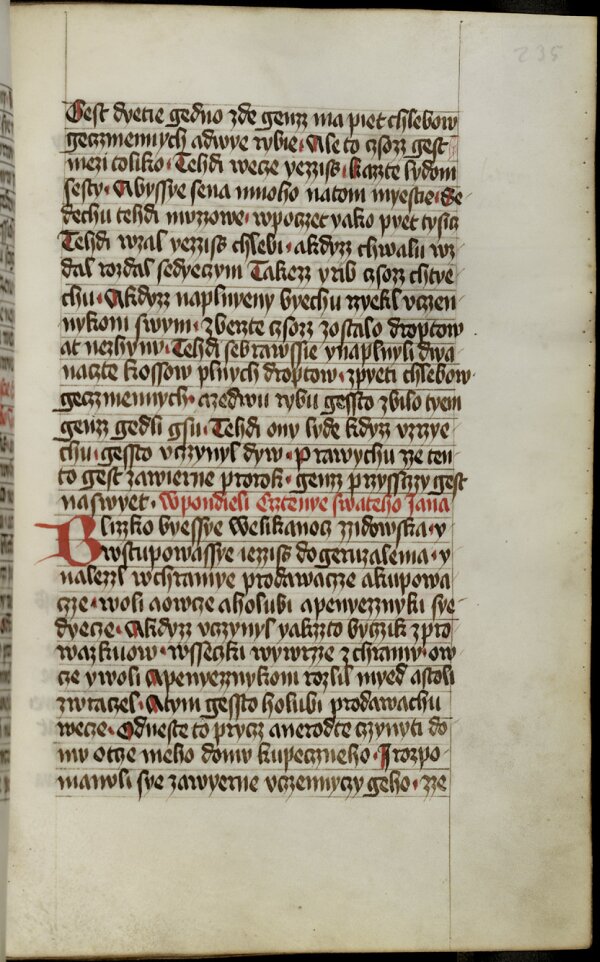 235
Gest dyetie gedno zde genz ma piet chlebow
geczmennych adwye rybie Ale to czsozz gest
mezi toliko Tehdi wecze yezziss kazte lydom
sesty Abyssye sena mnoho natom myestie Se
dechu tehdi muzzowe wpoczet yako pyet tysicz
Tehdi wzal yezziss chlebi akdyzz chwalu wz
dal rozdal sedyeczym Takezz y rib czsozz chtye
chu Akdyzz naplnyeny byechu rzyekl vczen
nykom swym zberte czsozz zostalo droptow
at nezhynu Tehdi sebrawssie ynaplnyli dwa
naczte kossow plnych droptow zpyeti chlebow
geczmennych czedwu rybu gessto zbilo tyem
genzz gedli gsu Tehdi ony lyde kdyzz vzrzye
chu gessto vczynyl dyw Prawychu ze ten
to gest zawierne prorok genz przyssczy gest
naswyet Wpondieli Cztenye swateho Jana
Blizko byessye welikanocz zzidowska y
wstupowassye iezziss dogeruzalema y
nalezzl wchramye prodawacze akupowa
cze woli aowcze aholubi apenyezznyki sye
dyecze Akdyzz vczynyl yakzto byczik zpro
wazkuow wsseczki wywrze zchramu ow
cze ywoli Apenyezznykom rozlil myed astoli
zwraczel Atym gessto holubi prodawachu
wecze Odneste to prycz anerodte czynyti do
mu otcze meho domu kupeczneho I rozpo
manuli sye zawyerne vczennyczy geho zze